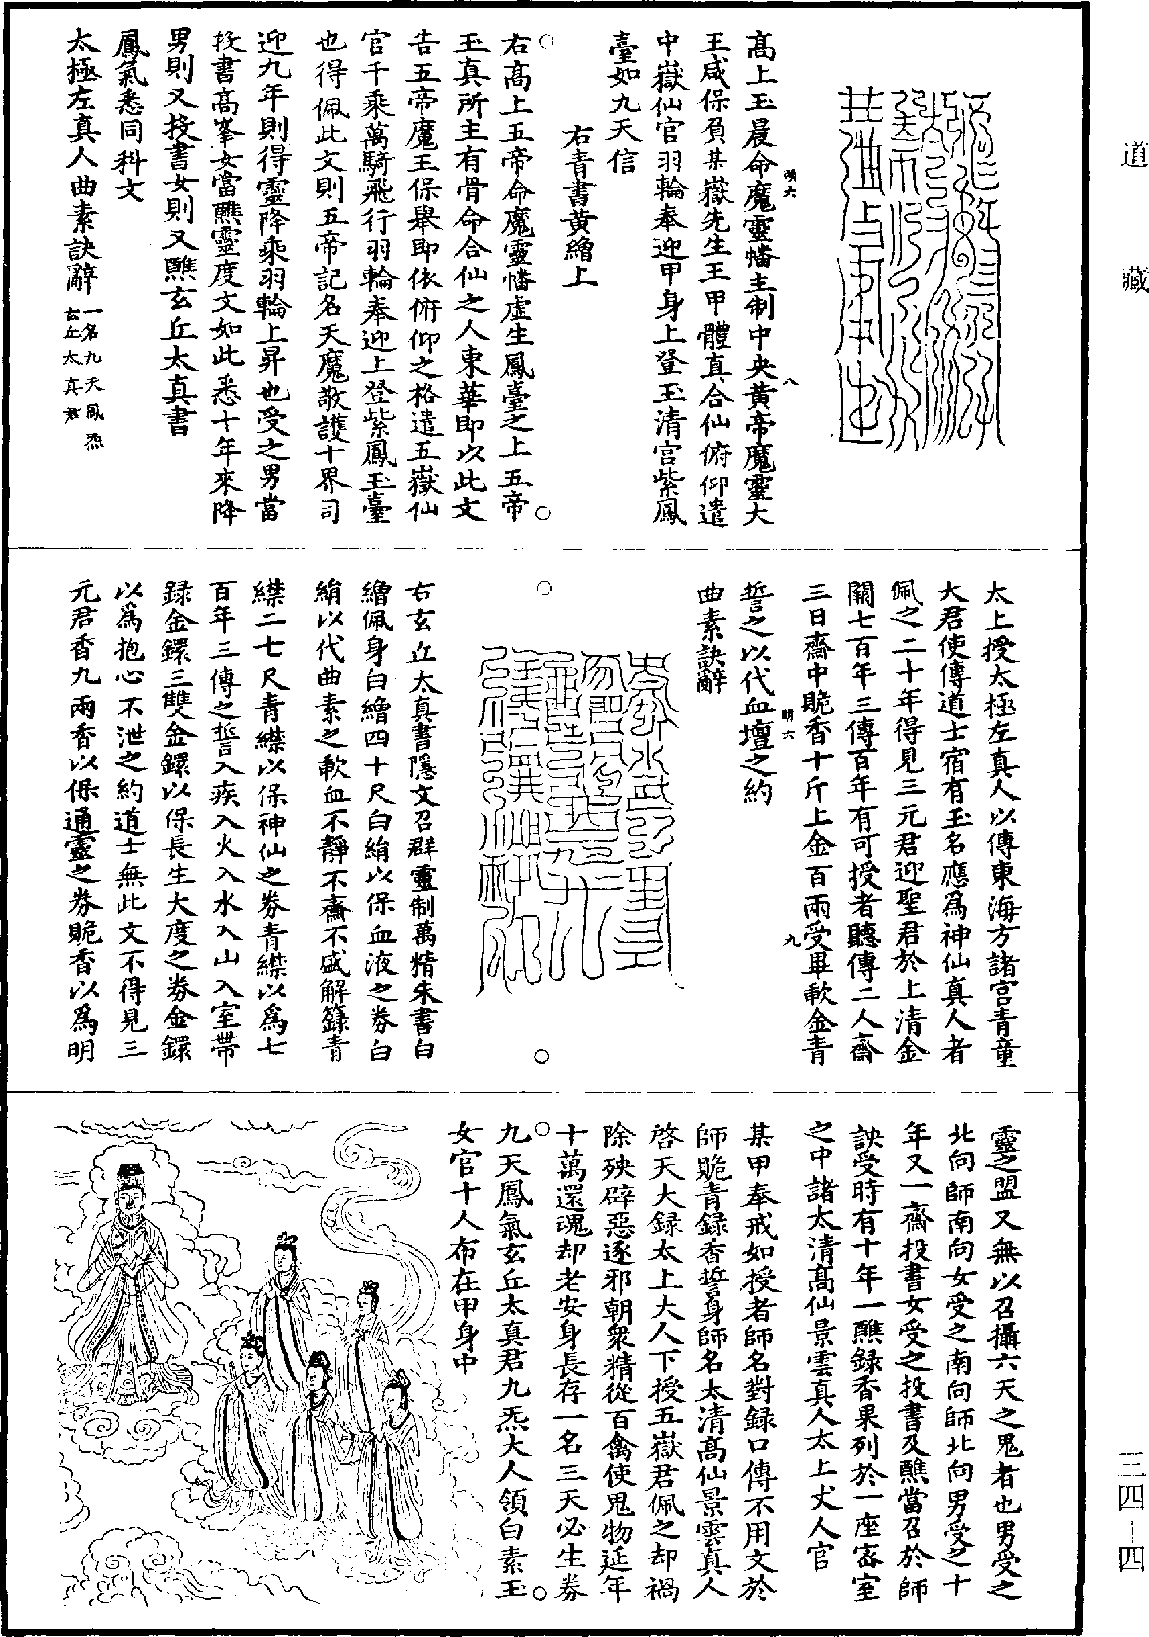 道藏
高上玉晨命魔靈幡主制中央黃帝魔靈大
王咸保負某嶽先生王甲體真合仙俯仰遣
中嶽仙官羽輪奉迎甲身上登玉清宮紫鳳
臺如九天信
右青書黃繒上
右高上五帝命魔靈幡虛生鳳臺之上五帝
玉真所主有骨命合仙之人東華即以此文
告五帝魔王保舉即依俯仰之格遣五嶽仙
官千乘萬騎飛行羽輪奉迎上登紫鳳玉臺
也得佩此文則五帝記名天魔敬護十界司
迎九年則得靈降乘羽輪上昇也受之男當
投書高峯女當醮靈度文如此悉十年來降
男則又投書女則又醮玄丘太真書
鳳氣悉同科文
太極左真人曲素訣辭 一名九天鳳炁玄丘太真書
太上授太極左真人以傳東海方諸宮青童
大君使傳道士宿有玉名應為神仙真人者
佩之二十年得見三元君迎聖君於上清金
闕七百年三傳百年有可授者聽傳二人齋
三日齋中賜香十斤上金百兩受畢軟金青
誓之以代血壇之約
曲素訣辭
右玄丘太真書隱文召群靈制萬精朱書白
繒佩身白繒四十尺白絹以保血液之券白
絹以代曲素之軟血不靜不齋不盛解籙青
繅二七尺青繅以保神仙之券青繅以為七
百年三傳之誓入疾入火入水入山入室帶
録金鐶三雙金鐶以保長生大度之券金鐶
以為抱心不泄之約道士無此文不得見三
元君香九兩香以保通靈之券賜香以為明
靈之盟又無以召攝六天之鬼者也男受之
北向師南向女受之南向師北向男受之十
年又一齋投書女受之投書及醮當召於師
訣受時有十年一醮録香果列於一座密室
之中諸太清高仙景雲真人太上丈人官
某甲奉戒如授者師名對録口傳不用文於
師賜青録香誓身師名太清高仙景雲真人
啓天大録太上大人下授五嶽君佩之却禍
除殃辟惡逐邪朝衆精從百禽使鬼物延年
十萬還魂却老安身長存一名三天必生券
九天鳳氣玄丘太真君九炁大人領白素玉
女官十人布在甲身中
三四-四